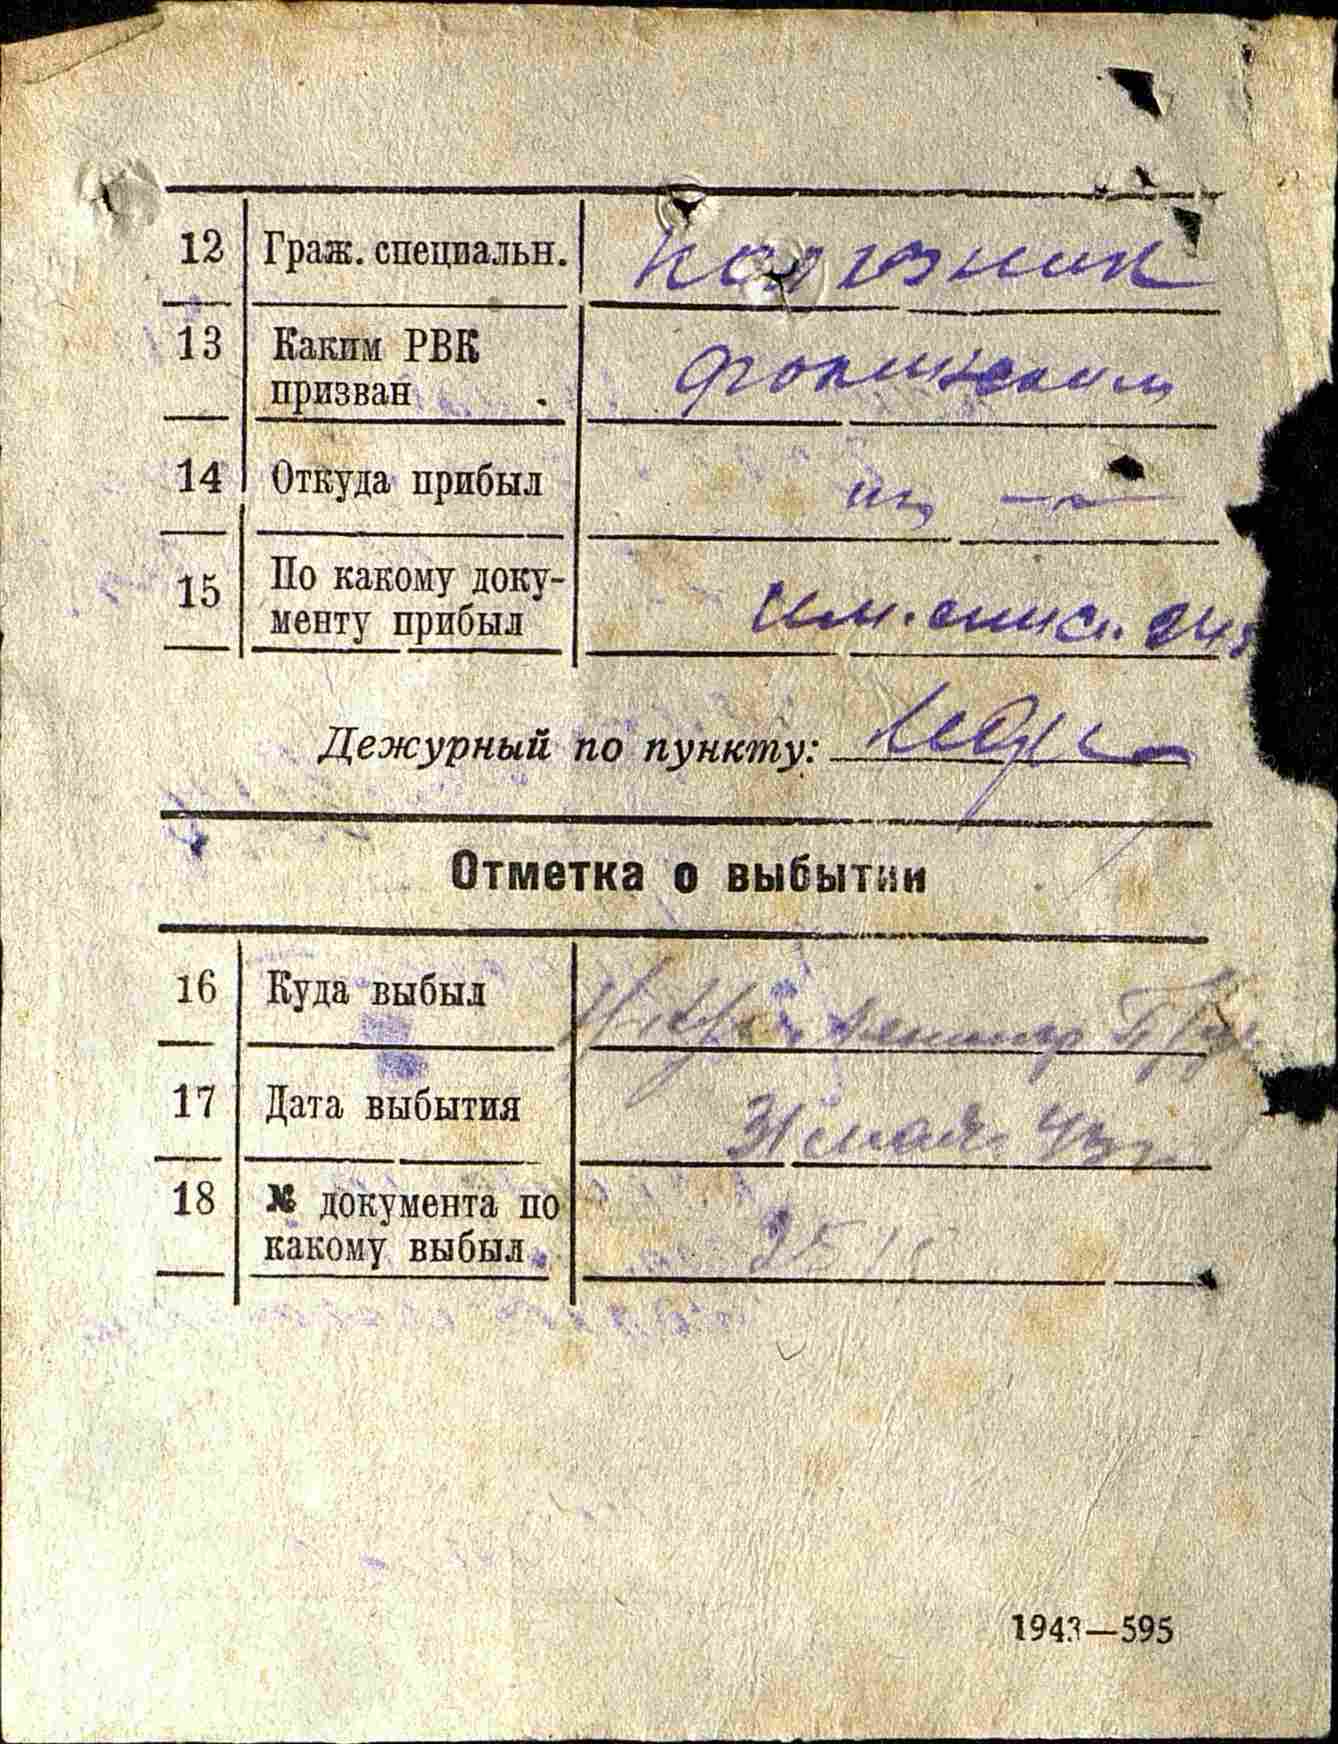 12 Граж. специальн. колхозник
13 Каким РВК
призван Фокинским
14 Откуда прибыл
15 По какому доку-
менту прибыл им. спис.
Дежурный по пункту:
Отметка о выбытии
16 Куда выбыл
17 Дата выбытия 31 мая 43г.
18 № документа по
какому выбыл
1943—595